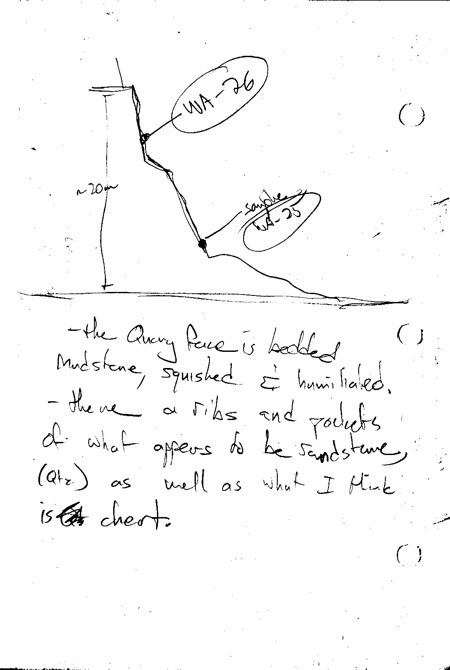 WA-26
~20m
sample
WA-25
-the Quarry face is bedded
Mudstone, squished & humiliated.
-there a ribs and pockets
of what appears to be sandstone,
(Qtz) as well as what I think
is chert.